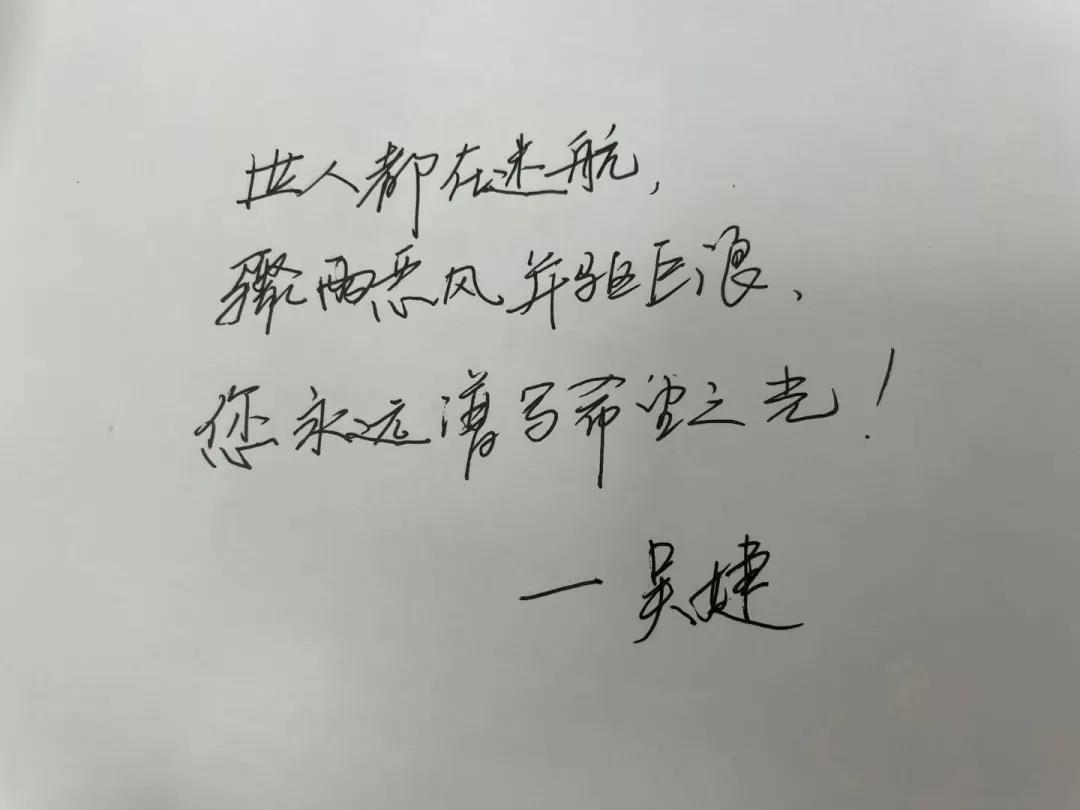 世人都在迷航，
骤雨恶风并驱巨浪、
您永远谱写希望之光！
— 吴婕